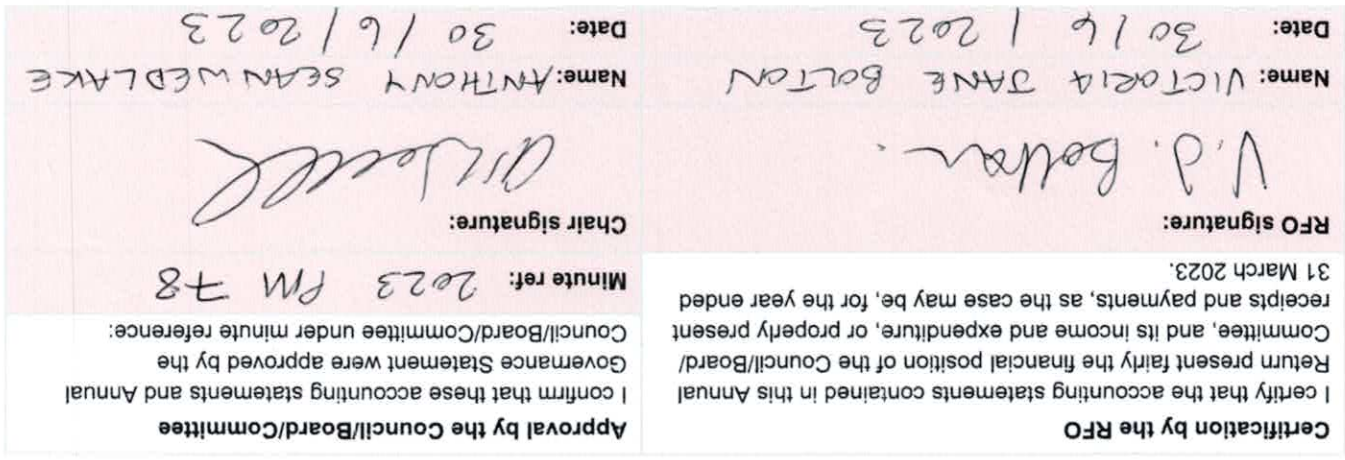 Certification by the RFO
I certify that the accounting statements contained in this Annual
Return present fairly the financial position of the Council/Board/
Committee, and its income and expenditure, or properly present
receipts and payments, as the case may be, for the year ended
31 March 2023.
RFO signature:
V. J. Bolton.
Name: VICTORIA JANE BOLTON
Date: 30 / 6 / 2023
Approval by the Council/Board/Committee
I confirm that these accounting statements and Annual
Governance Statement were approved by the
Council/Board/Committee under minute reference:
Minute ref: 2023 PM 78
Chair signature:
Name: ANTHONY SEAN WEDLAKE
Date: 30 / 6 / 2023